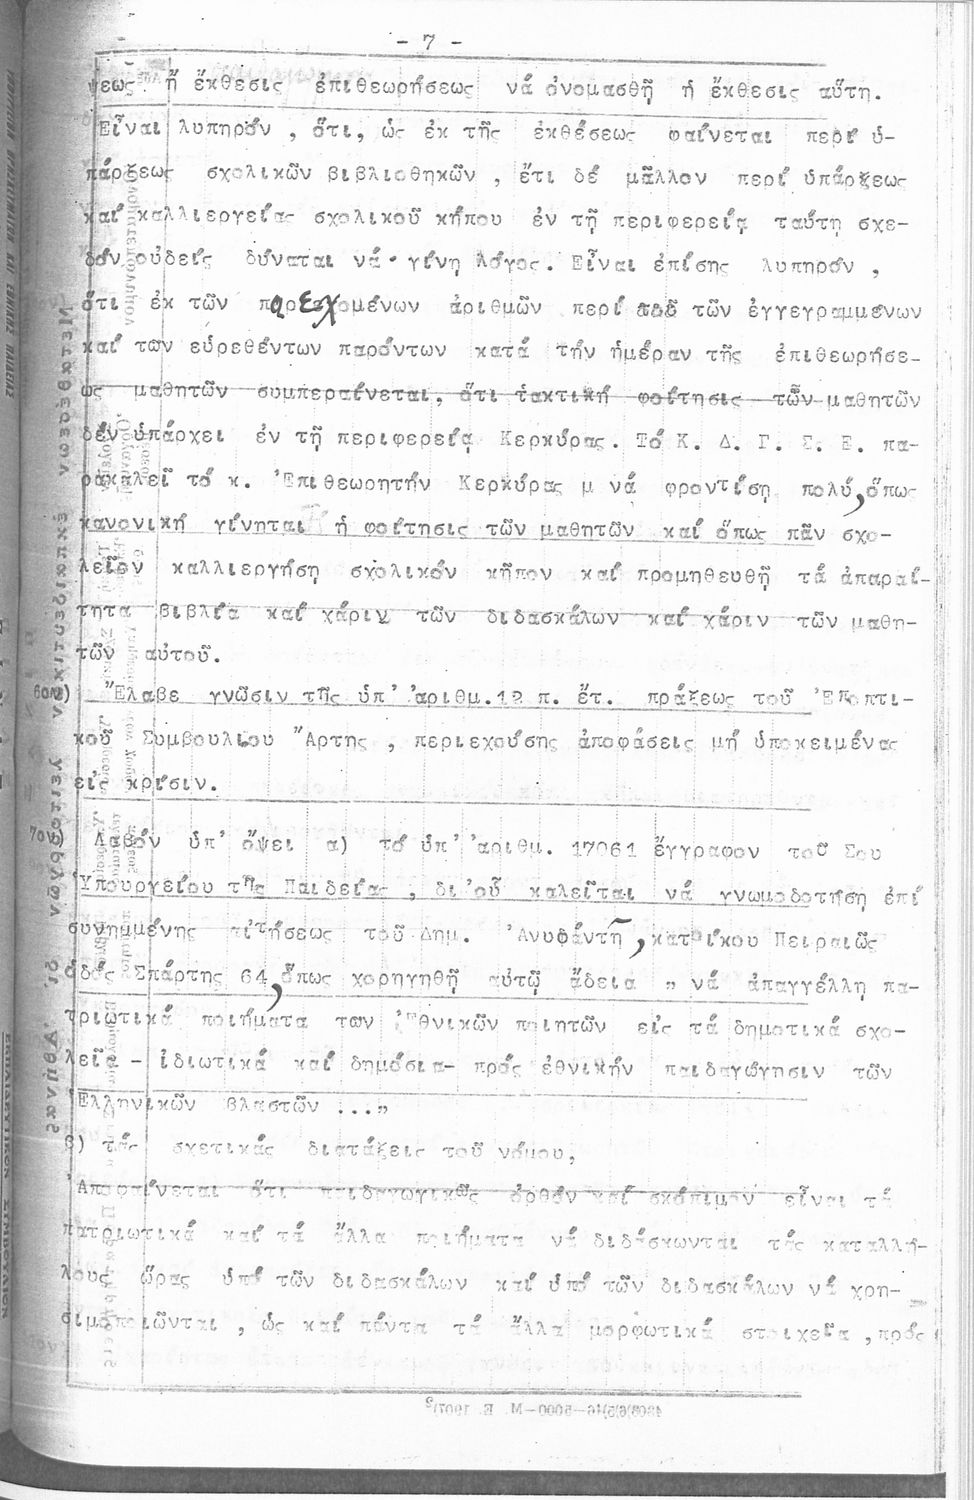 - 7 -
ψεως ἤ ἔκθεσις ἐπιθεωρήσεως νά ὀνομασθῇ ἡ ἔκθεσις αὕτη.
Εἶναι λυπηρόν , ὅτι, ὡς ἐκ τῆς ἐκθέσεως φαίνεται περί ὑ-
πάρξεως σχολικῶν βιβλιοθηκῶν , ἔτι δέ μᾶλλον περί ὑπάρξεως
καί καλλιεργείας σχολικοῦ κήπου ἐν τῇ περιφερείᾳ ταύτῃ σχε-
δόν οὐδείς δύναται νά γίνη λόγος. Εἶναι ἐπίσης λυπηρόν ,
ὅτι ἐκ τῶν παρεχομένων ἀριθμῶν περί τῶν ἐγγεγραμμένων
καί τῶν εὑρεθέντων παρόντων κατά τήν ἡμέραν τῆς ἐπιθεωρήσε-
ως μαθητῶν συμπεραίνεται, ὅτι τακτική φοίτησις τῶν μαθητῶν
δέν ὑπάρχει ἐν τῇ περιφερείᾳ Κερκύρας. Τό Κ. Δ. Γ. Σ. Ε. πα-
ρακαλεῖ τό κ. Ἐπιθεωρητήν Κερκύρας μ νά φροντίσῃ πολύ, ὅπως
κανονική γίνηται ἡ φοίτησις τῶν μαθητῶν καί ὅπως πᾶν σχο-
λεῖον καλλιεργήσῃ σχολικόν κῆπον καί προμηθευθῇ τά ἀπαραί-
τητα βιβλία καί χάριν τῶν διδασκάλων καί χάριν τῶν μαθη-
τῶν αὐτοῦ.
6ον) Ἔλαβε γνῶσιν τῆς ὑπ' ἀριθμ.12 π. ἔτ. πράξεως τοῦ Ἐποπτι-
κοῦ Συμβουλίου Ἄρτης , περιεχούσης ἀποφάσεις μή ὑποκειμένας
εἰς κρίσιν.
7ον) Λαβόν ὑπ' ὄψει α) τό ὑπ' ἀριθμ. 17061 ἔγγραφον τοῦ Σου
Ὑπουργείου τῆς Παιδείας , δι'οὗ καλεῖται νά γνωμοδοτήσῃ ἐπί
συνημμένης αἰτήσεως τοῦ Δημ. Ἀνυφάντη, κατοίκου Πειραιῶς
ὁδός Σπάρτης 64, ὅπως χορηγηθῇ αὐτῷ ἄδεια „ νά ἀπαγγέλλῃ πα-
τριωτικά ποιήματα τῶν ἐθνικῶν ποιητῶν εἰς τά δημοτικά σχο-
λεῖα - ἰδιωτικά καί δημόσια- πρός ἐθνικήν παιδαγώγησιν τῶν
Ἑλληνικῶν βλαστῶν ...„
β) τάς σχετικάς διατάξεις τοῦ νόμου,
Ἀποφαίνεται ὅτι παιδαγωγικῶς ὀρθόν καί σκόπιμον εἶναι τά
πατριωτικά καί τά ἄλλα ποιήματα νά διδάσκωνται τάς καταλλή-
λους ὥρας ὑπό τῶν διδασκάλων καί ὑπό τῶν διδασκάλων νά χρη-
σιμοποιῶνται , ὡς καί πάντα τά ἄλλα μορφωτικά στοιχεῖα ,πρός